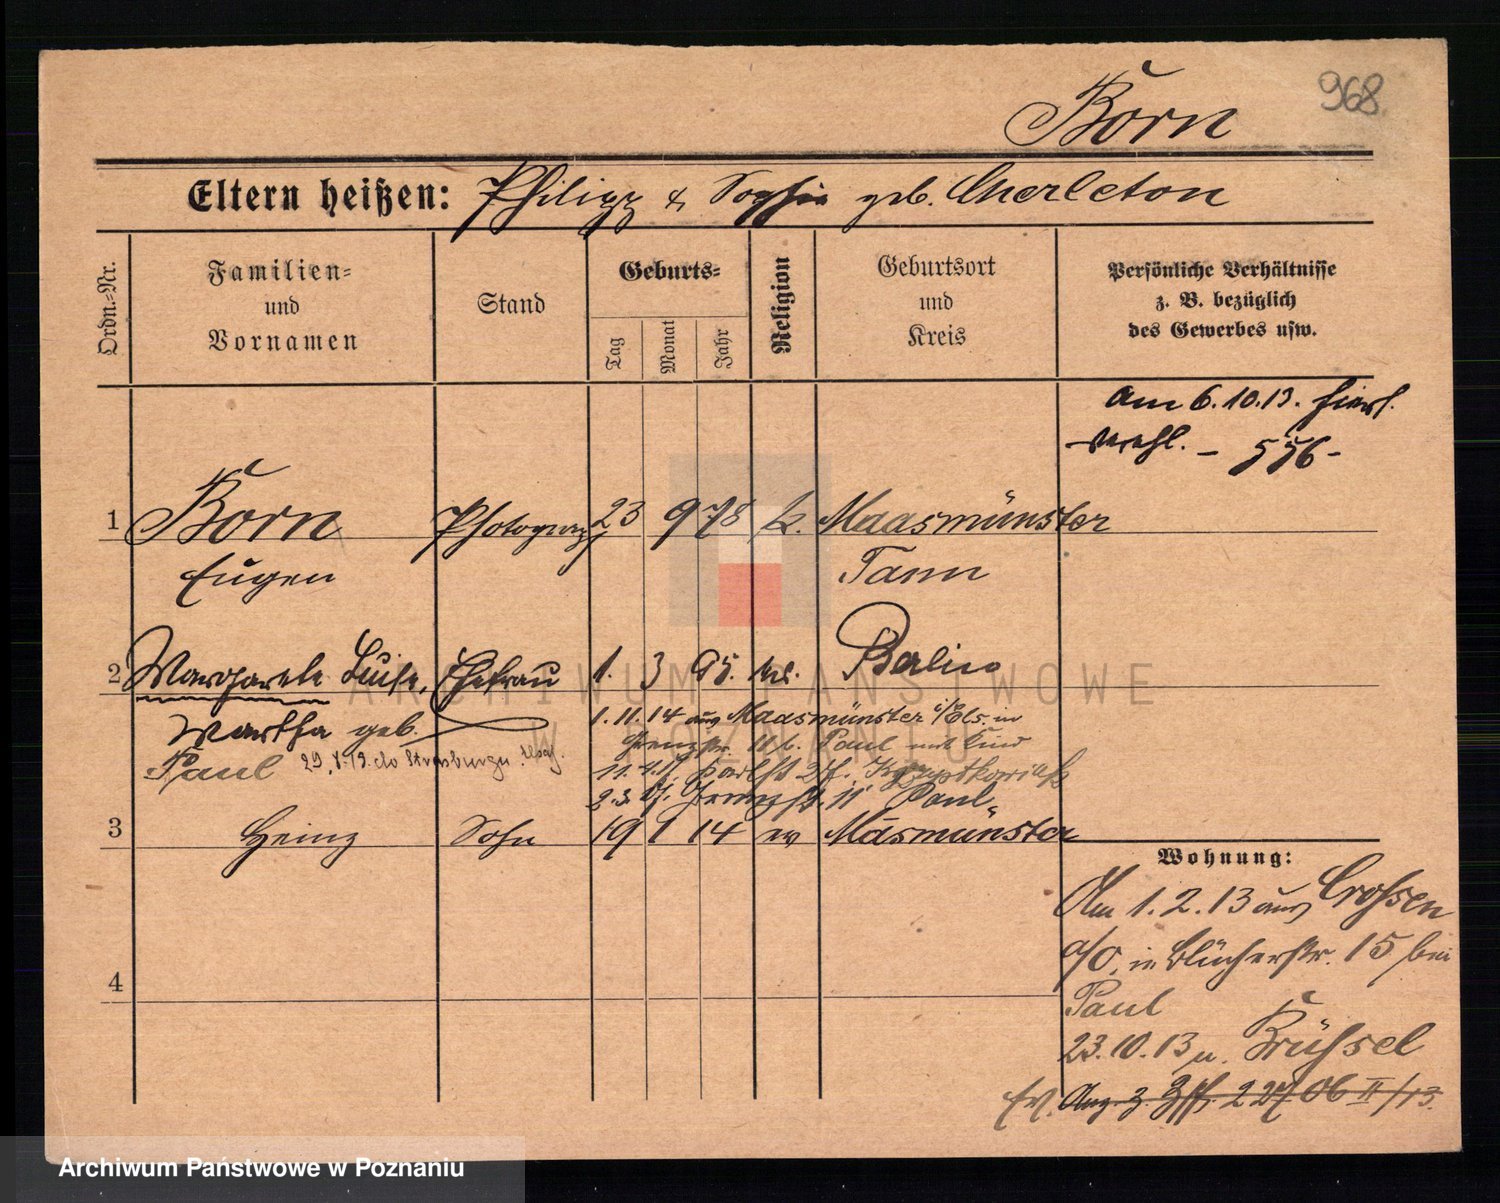 968
Born
Eltern heißen: Philipp & Sophie geb. Cherleton
Ordn.-Nr.
Familien-
und
Vornamen
Stand
Geburts-
Tag
Monat
Jahr
Religion
Geburtsort
und
Kreis
Persönliche Verhältnisse
z. B. bezüglich
des Gewerbes usw.
am 6.10.13. hier
verehl. - 556 -
1 Born Photograph 23 9 78 k. Maasmünster
Eugen Tann
2 Margarete Luise, Ehefrau 1. 3 95. Berlin
Martha geb.
Paul 29. do Strasburg
1.11.14 aus Maasmünster i/Els. in
11 b. Paul mit Kind
11
Paul
3 Heinz Sohn 19 1 14 ev Masmünster
4
Wohnung:
Am 1.2.13 aus Crossen
a/O. in Blücherstr. 15 bei
Paul
23.10.13 n. Brüssel
ARCHIWUM PAŃSTWOWE
W POZNANIU
Archiwum Państwowe w Poznaniu